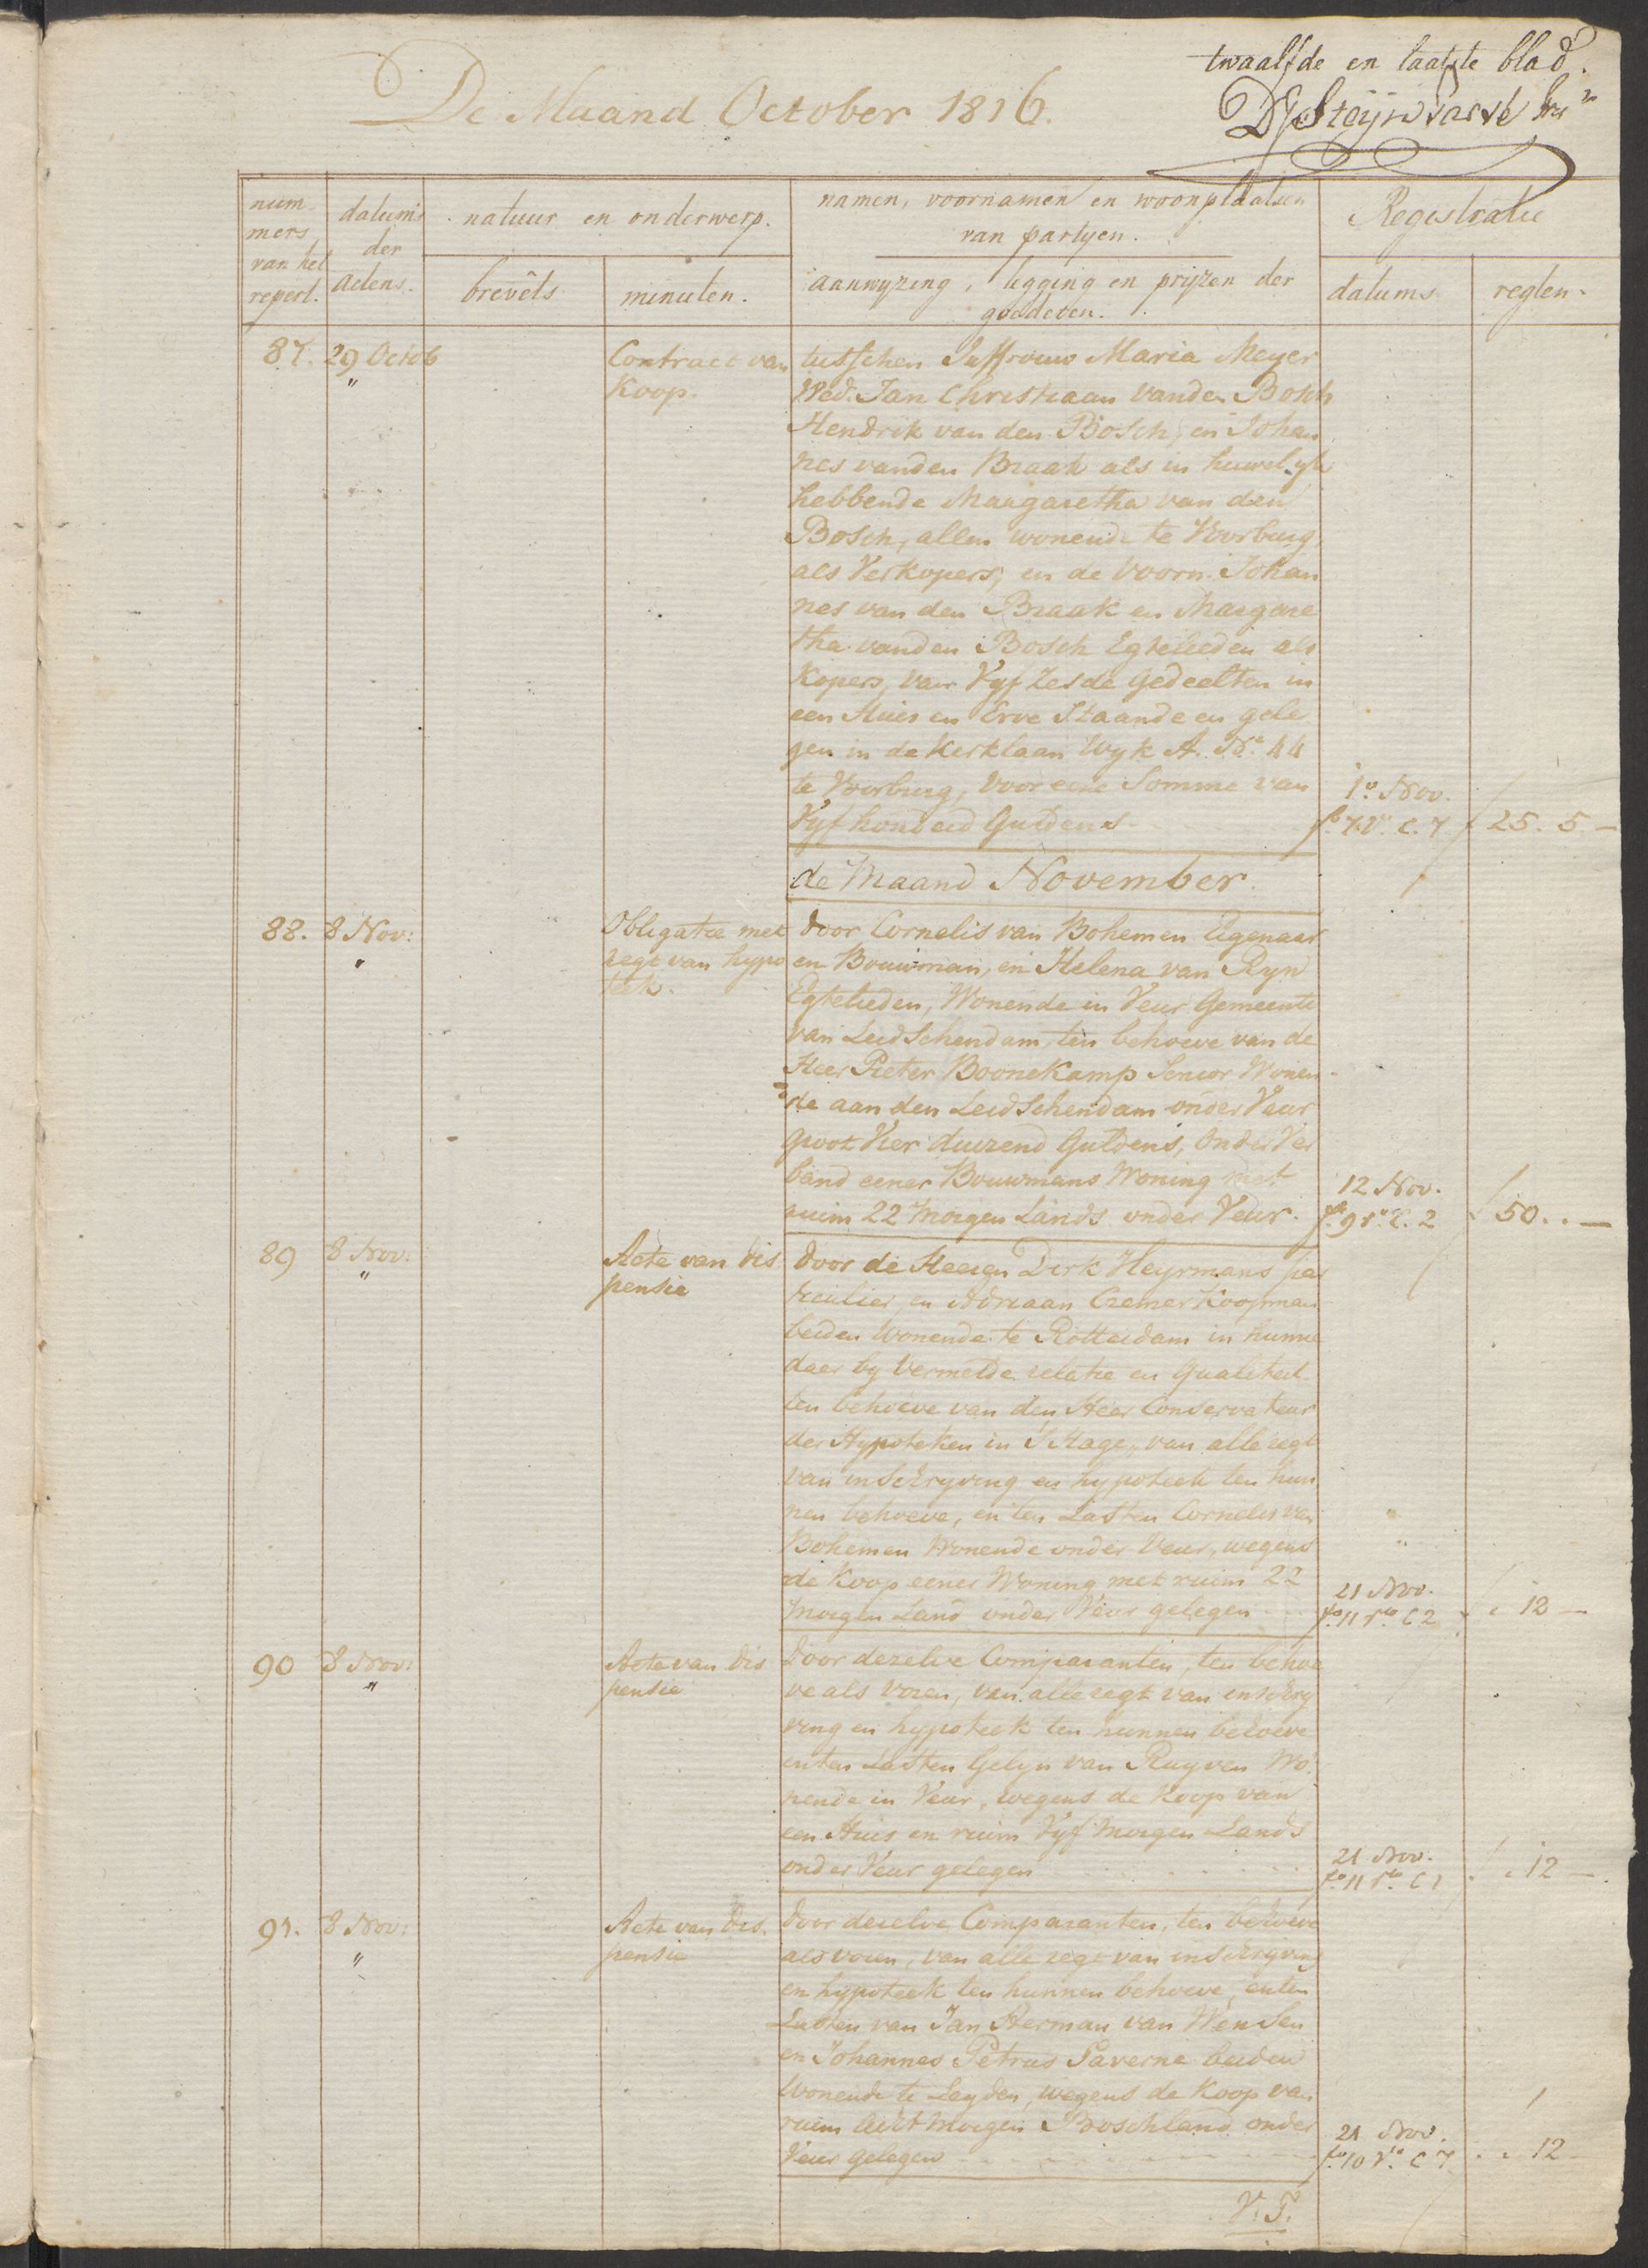 twaalfde en laatste blad.
De Maand October 1816.
num-
mers
van het
repert.
datums
der
actens.
natuur en onderwerp.
brevêts
minuten.
namen, voornamen en woonplaatsen
van partyen.
aanwyzing, ligging en pryzen der
goederen.
Registratie
datums
reglen.
87. 29 Octob Contract van tusschen Juffrouw Maria Meyer
" Koop. Wed. Jan Christiaan vanden Bosch
Hendrik van den Bosch, en Johan
nes vanden Braak als in huwelyk
hebbende Margaretha van den
Bosch, allen wonende te Voorburg,
als Verkopers, en de voorn. Johan
nes van den Braak en Margare
tha vanden Bosch Egtelieden als
Kopers, van Vyf Zesde Gedeelten in
een Huis en Erve Staande en gele
gen in de Kerklaan Wyk A. No. 44
te Voorburg, voor eene Somme van 1o Nov.
Vyf honderd Guldens fo. 7. Vo. C. 7 25. 5. —
de Maand November.
88. 8 Nov: Obligatie met door Cornelis van Bohemen Eigenaar
" regt van hypo en Bouwman, en Helena van Ryn
teek. Egtelieden, Wonende in Veur Gemeente
van Leidschendam, ten behoeve van de
Heer Pieter Boonekamp Senior Wonen-
de aan den Leidschendam onder Veur
groot Vier duizend Guldens, onder Ver
band eener Bouwmans Woning met 12 Nov.
ruim 22 morgen Lands onder Veur. fo. 9 ro. C. 2 50. . —
89 8 Nov: Acte van dis door de Heeren Dirk Heyrmans par
" pensie ticulier, en Adriaan Cremer Koopman
beiden Wonende te Rotterdam in hunne
daer by vermelde relatie en Qualiteit.
ten behoeve van den Heer Conservateur
der Hypoteken in S'Hage, van alle regt
van inschryving en hypoteek ten hun
nen behoeve, en ten Lasten Cornelis van
Bohemen Wonende onder Veur, wegens
de Koop eener Woning met ruim 22 21 Nov.
morgen Land onder Veur gelegen fo. 11 ro. C 2 " 12 —
90 8 Nov: Acte van dis door dezelve Comparanten, ten behoe
" pensie ve als voren, van alle regt van inschry
ving en hypoteek ten hunnen behoeve
en ten Lasten Gelyn van Ruyven Wo
nende in Veur, wegens de Koop van
een Huis en ruim Vyf Morgen Lands 21 Nov.
onder Veur gelegen fo. 11 ro. C 1 " 12 —
91. 8 Nov: Acte van dis. door dezelve Comparanten, ten behoeve
" pensie als voren, van alle regt van inschryving
en hypoteek ten hunnen behoeve, en ten
Lasten van Jan Herman van Wensen
en Johannes Petrus Taverne beiden
Wonende te Leyden, wegens de Koop van
ruim acht Morgen Boschland onder 21 Nov.
Veur gelegen fo. 10 Vo. C 7 " 12 —
V. T.